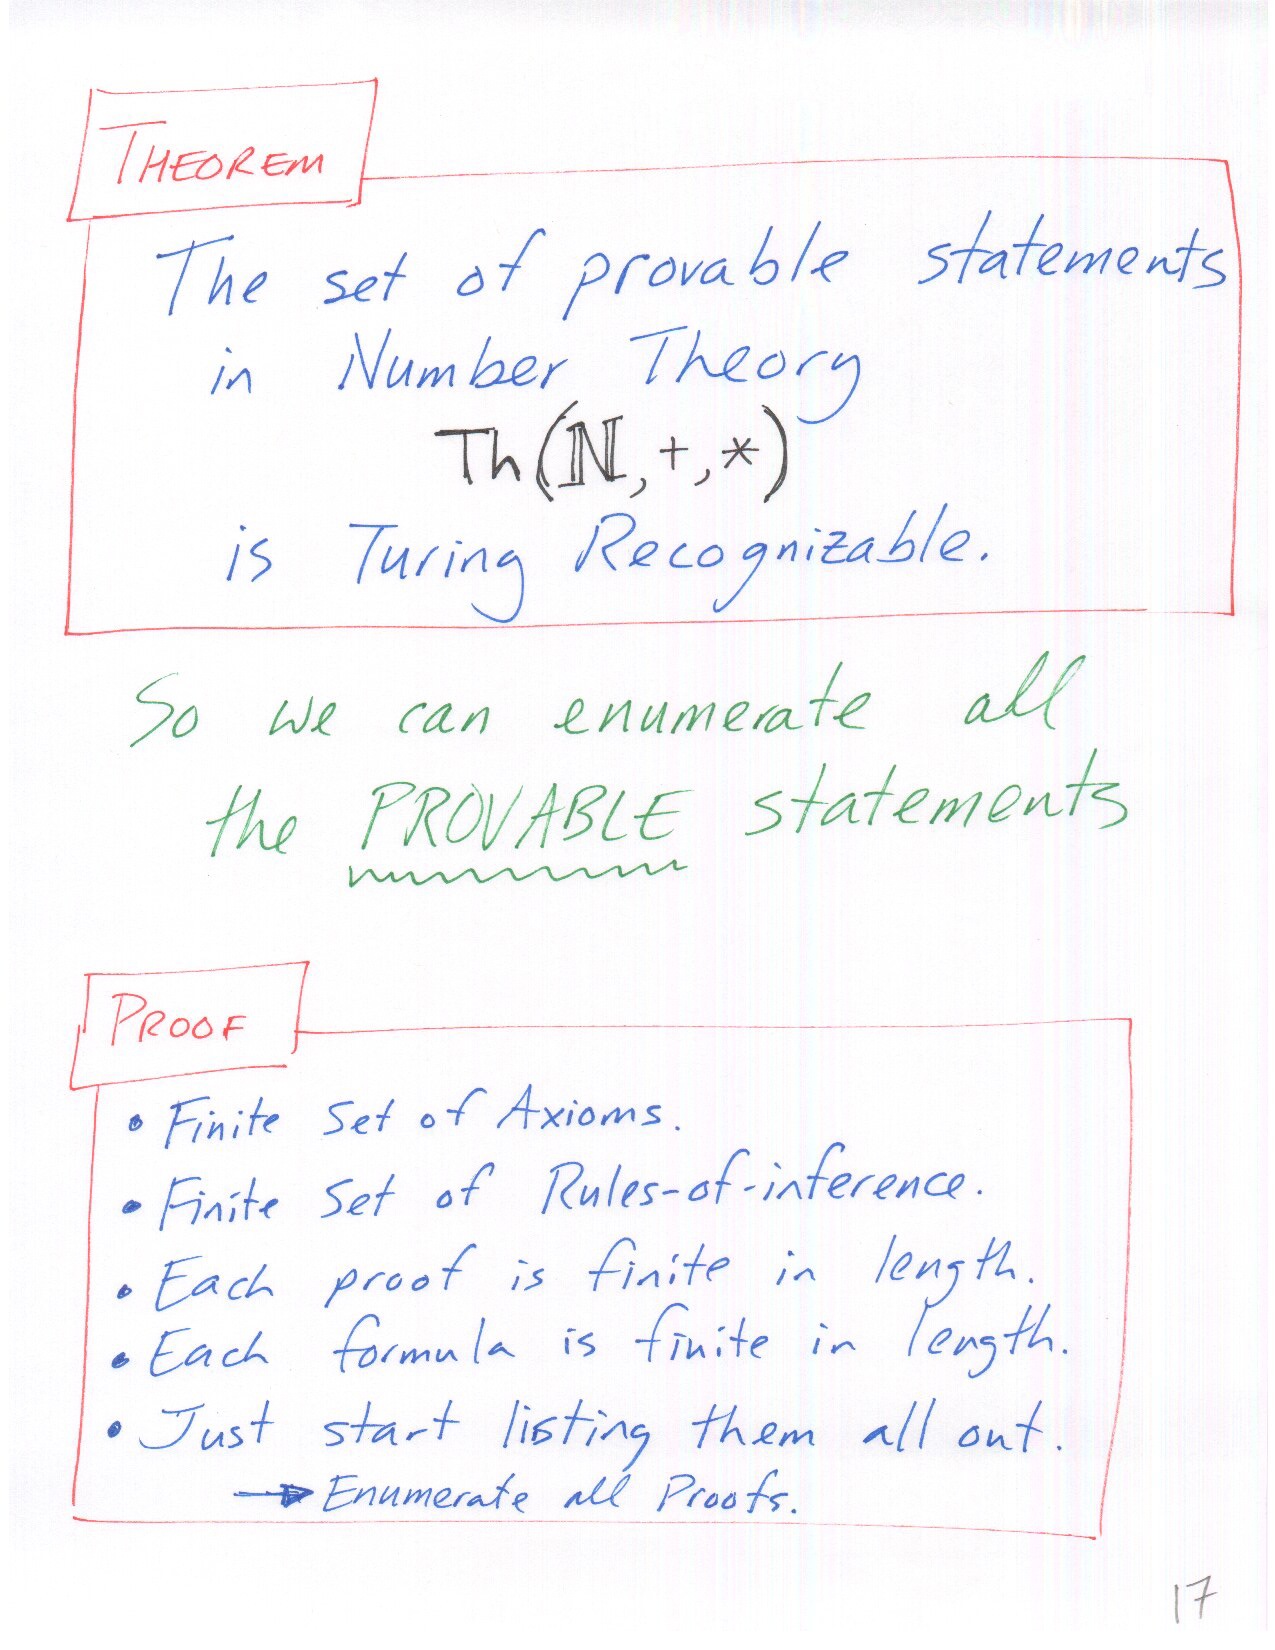 THEOREM
The set of provable statements
in Number Theory
Th(ℕ, +, *)
is Turing Recognizable.
So we can enumerate all
the PROVABLE statements
PROOF
• Finite Set of Axioms.
• Finite Set of Rules-of-inference.
• Each proof is finite in length.
• Each formula is finite in length.
• Just start listing them all out.
→ Enumerate all Proofs.
17